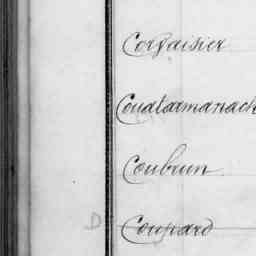 Corvaisier
Coudarmanach
Coubrun
D Coupard